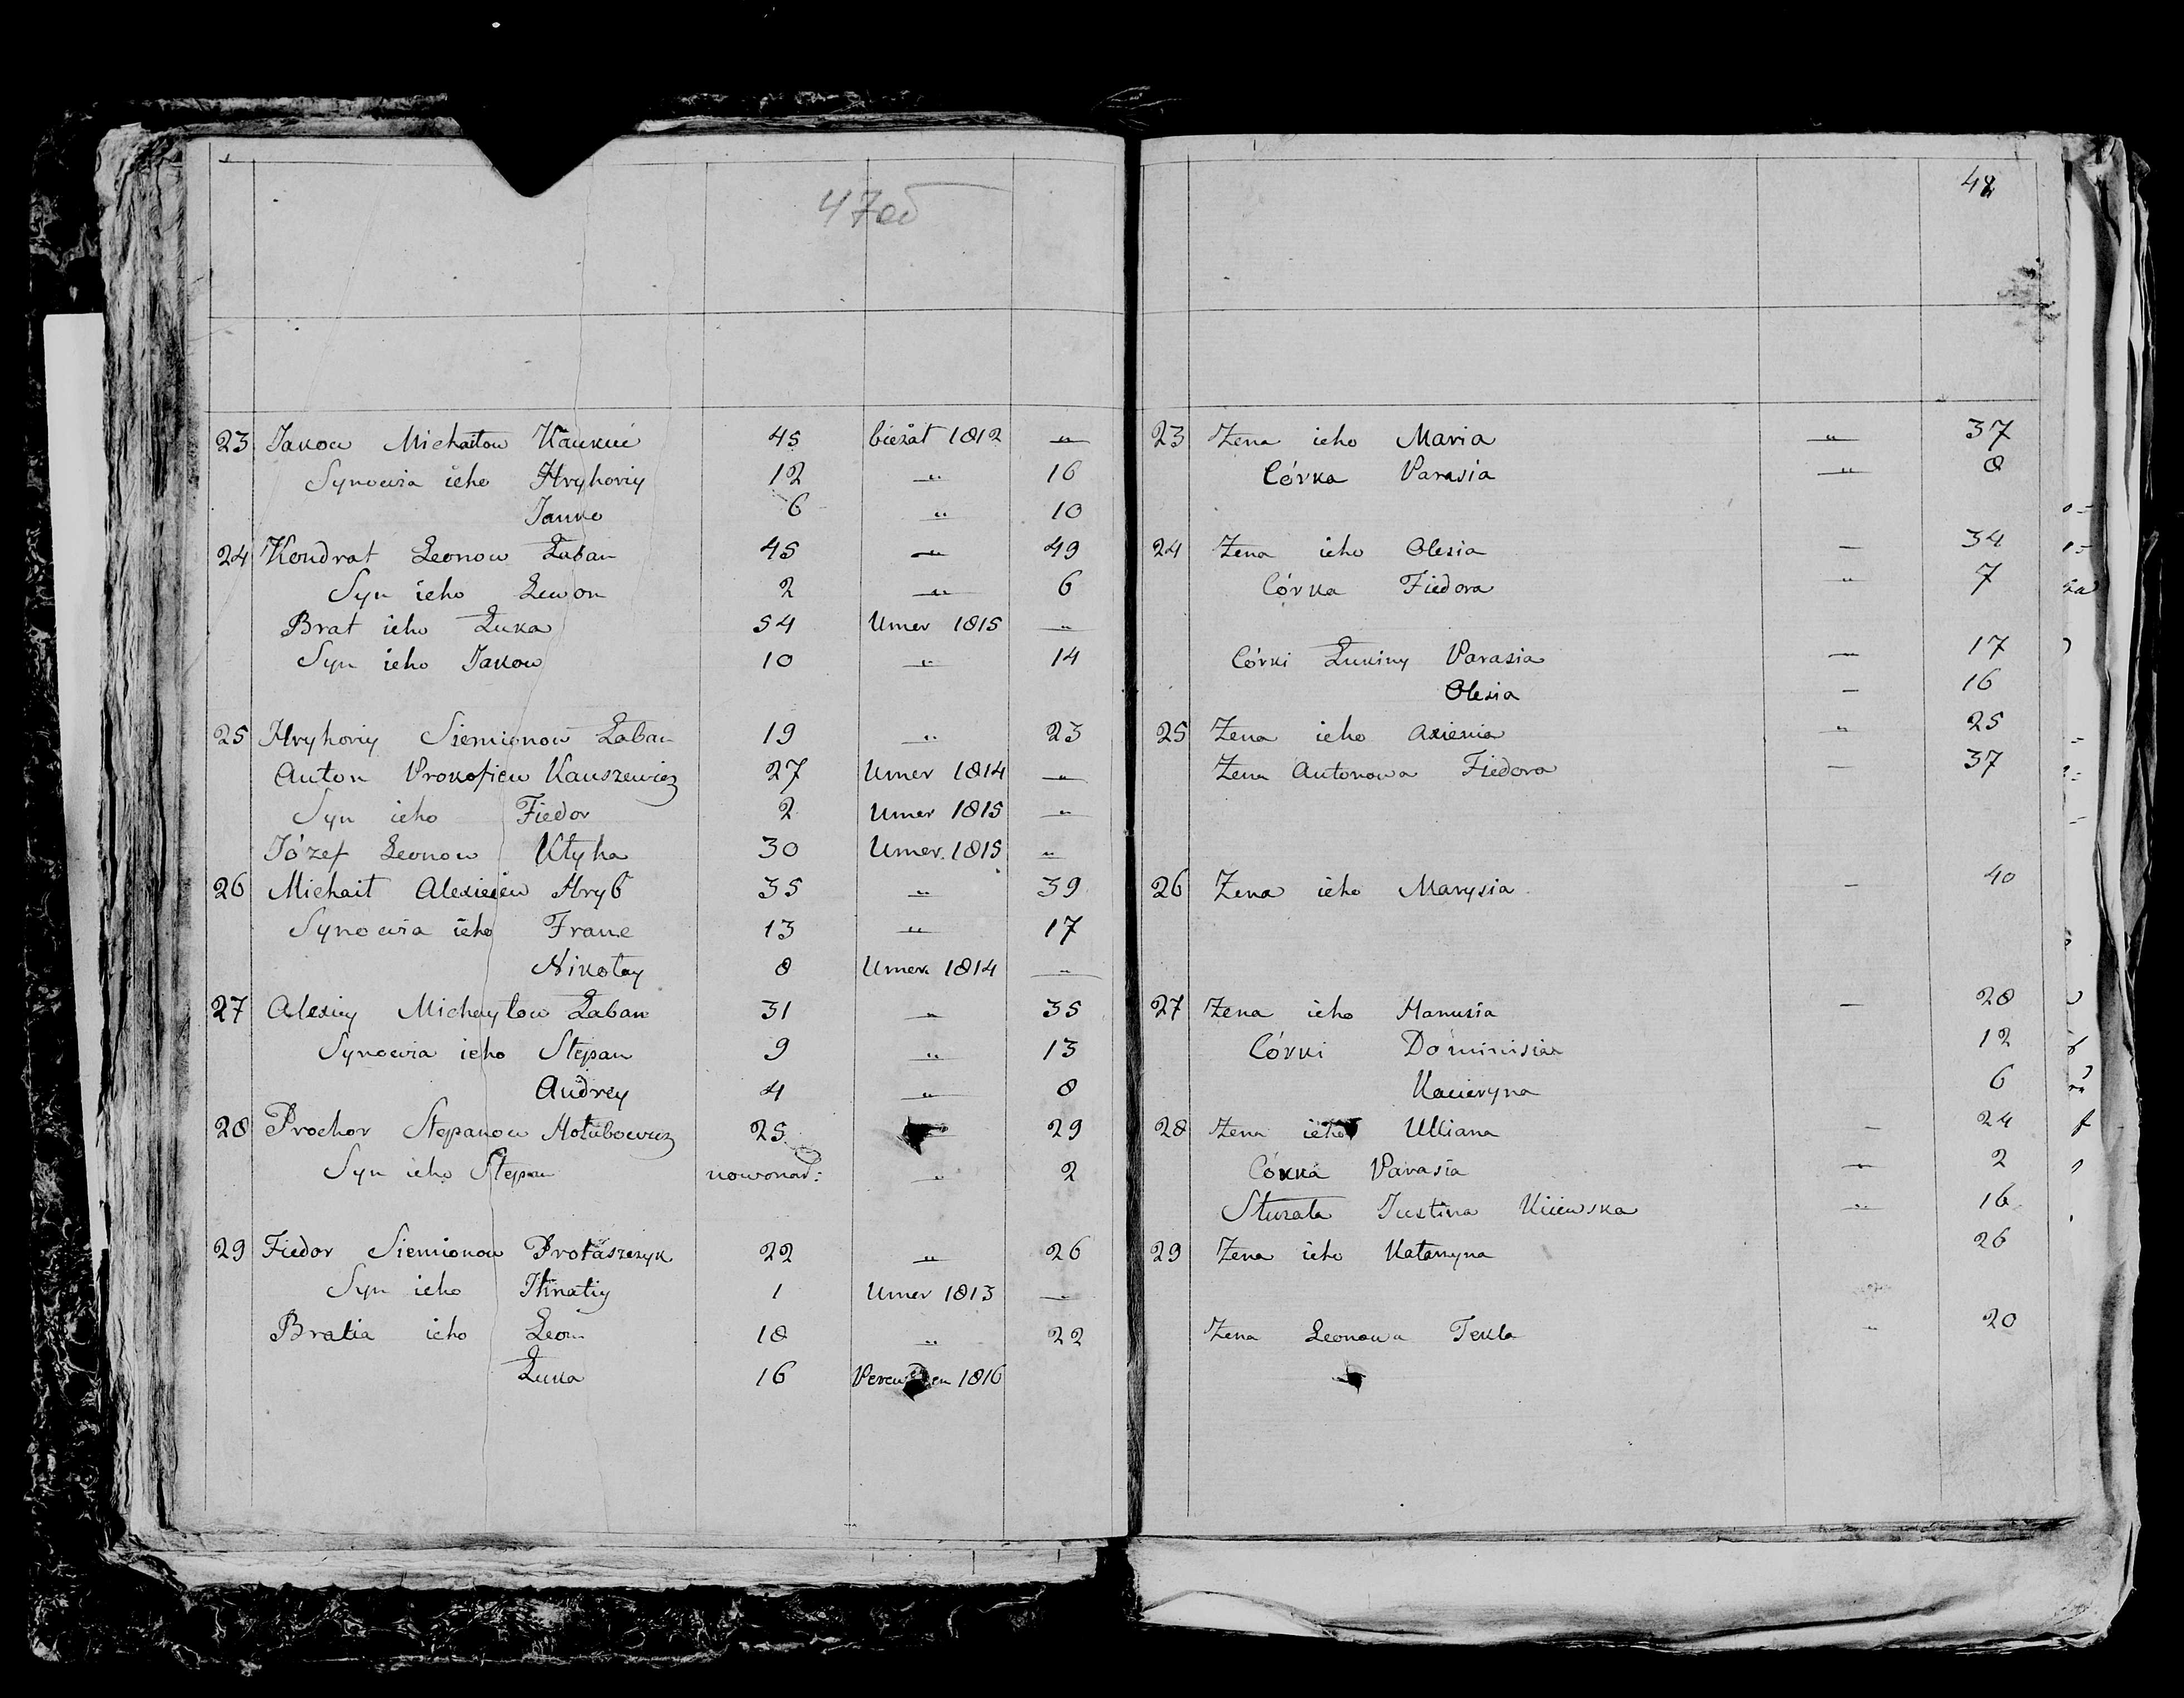 47об
23 Jakow Michałow Kaukuć 45 bieżał 1812 — " —
Synowia ieho Hryhoriy 12 — " — 16
Janko 6 — " — 10
24 Kondrat Leonow Łaban 45 — " — 49
Syn ieho Lewon 2 — " — 6
Brat ieho Łuka 54 Umer 1815 — " —
Syn ieho Jakow 10 — " — 14
25 Hryhoriy Siemionow Łaban 19 — " — 23
Anton Prokofiew Kauszewicz 27 Umer 1814 — " —
Syn ieho Fiedor 2 Umer 1815 — " —
Józef Leonow Kłyha 30 Umer 1815 — " —
26 Michaił Alexieiew Hryb 35 — " — 39
Synowia ieho Franc 13 — " — 17
Nikołay 8 Umer 1814 — " —
27 Alexiey Michayłow Łaban 31 — " — 35
Synowia ieho Stepan 9 — " — 13
Andrey 4 — " — 8
28 Prochor Stepanow Hołubowicz 25 — 29
Syn ieho Stepan nowonar: — " — 2
29 Fiedor Siemionow Protaszczyk 22 — " — 26
Syn ieho Ihnatiy 1 Umer 1813 — " —
Bratia ieho Leon 18 — " — 22
Łuka 16 1816
48
23 Żena ieho Maria — " — 37
Córka Parasia — " — 8
24 Żena ieho Olesia — 34
Córka Fiedora — " — 7
Córki Łukiny Parasia — " — 17
Olesia — 16
25 Żena ieho Axienia — " — 25
Żena Antonowa Fiedora — 37
26 Żena ieho Marysia — 40
27 Żena ieho Hanusia — 28
Córki Dominisia 12
Kacieryna 6
28 Żena ieho Ulliana — 24
Córka Parasia — " — 2
Służała Justina Kiiewska — " — 16
29 Żena ieho Katarzyna 26
Żena Leonowa Tekla — " — 20